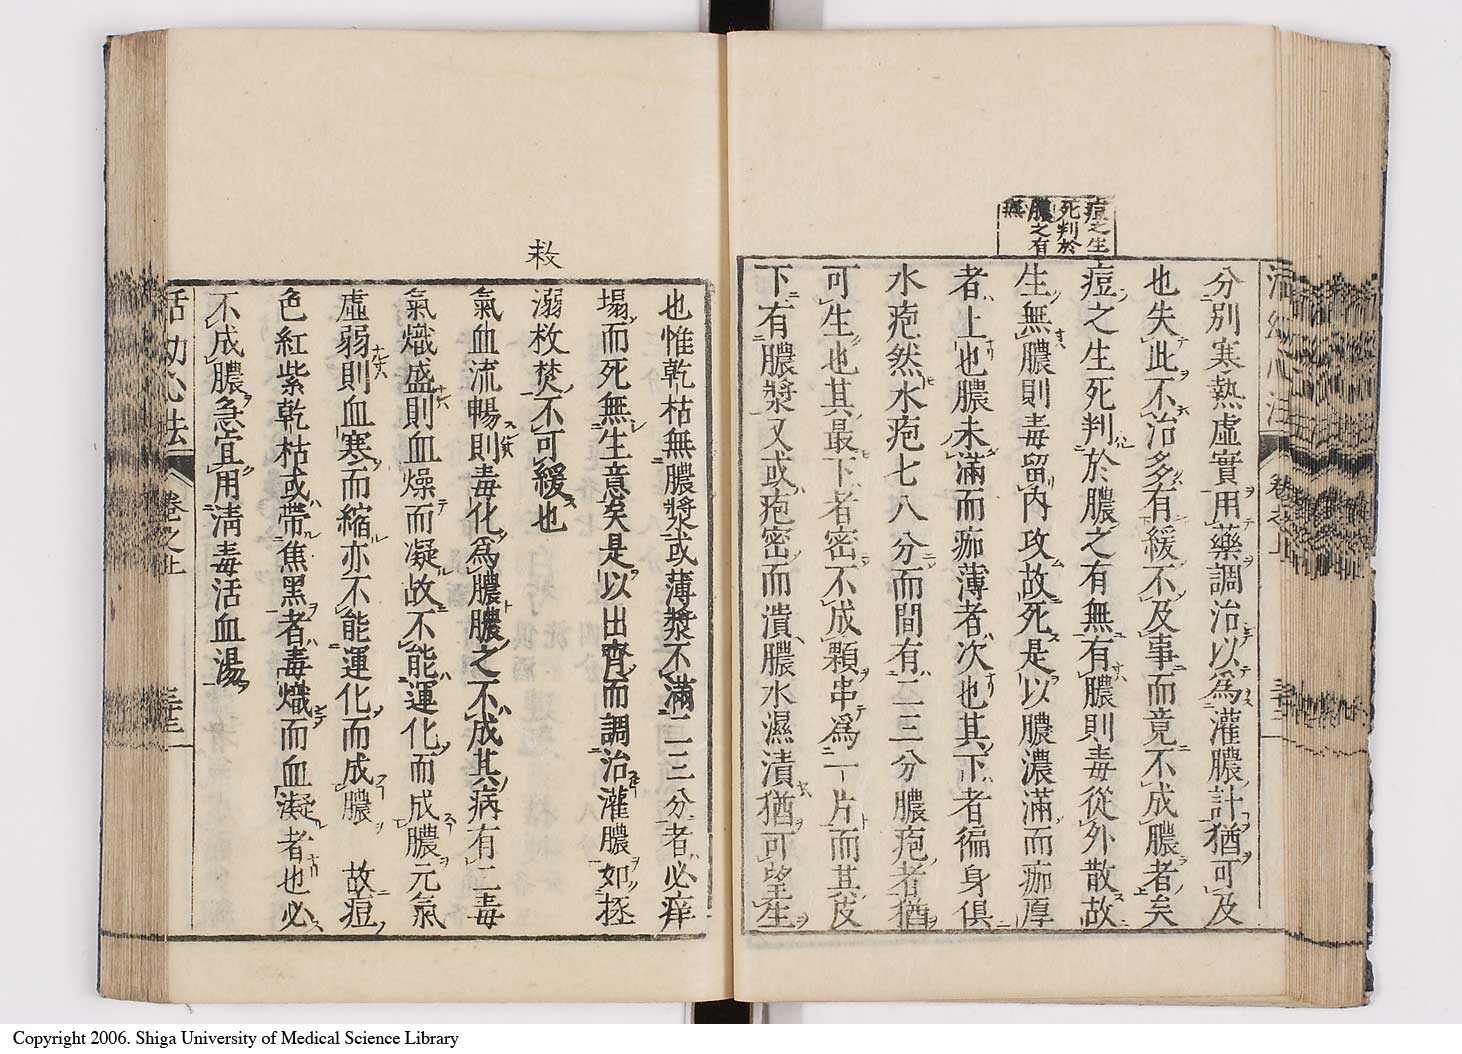 痘之生
死判於
膿之有
無
分別寒熱虛實用藥調治以爲灌膿計猶可及
也失此不治多有緩不及事而竟不成膿者矣
痘之生死判於膿之有無有膿則毒從外散故
生無膿則毒留內攻故死是以膿濃滿而痂厚
者上也膿未滿而痂薄者次也其下者徧身俱
水疱然水疱七八分而間有二三分膿疱者猶
可生也其最下者密不成顆串爲一片而其皮
下有膿漿又或疱密而潰膿水濕漬猶可望生
活幼心法 卷之上
敉
也惟乾枯無膿漿或薄漿不滿二三分者必痒
塌而死無生意矣是以出齊而調治灌膿如拯
溺敉焚不可緩也
氣血流暢則毒化爲膿膿之不成其病有二毒
氣熾盛則血燥而凝故不能運化而成膿元氣
虛弱則血寒而縮亦不能運化而成膿 故痘
色紅紫乾枯或帶焦黑者毒熾而血凝者也必
不成膿急宜用清毒活血湯
活幼心法 卷之上
Copyright 2006. Shiga University of Medical Science Library